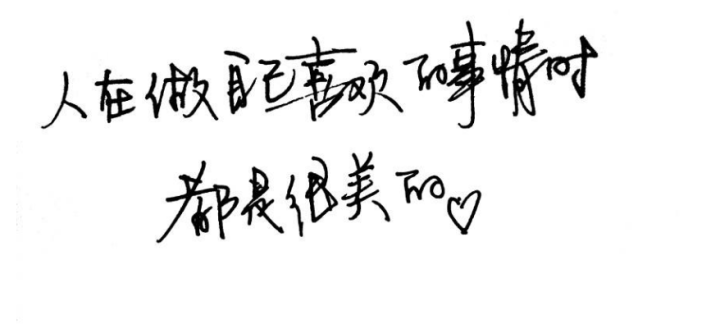 人在做自己喜欢的事情时
都是很美的♡